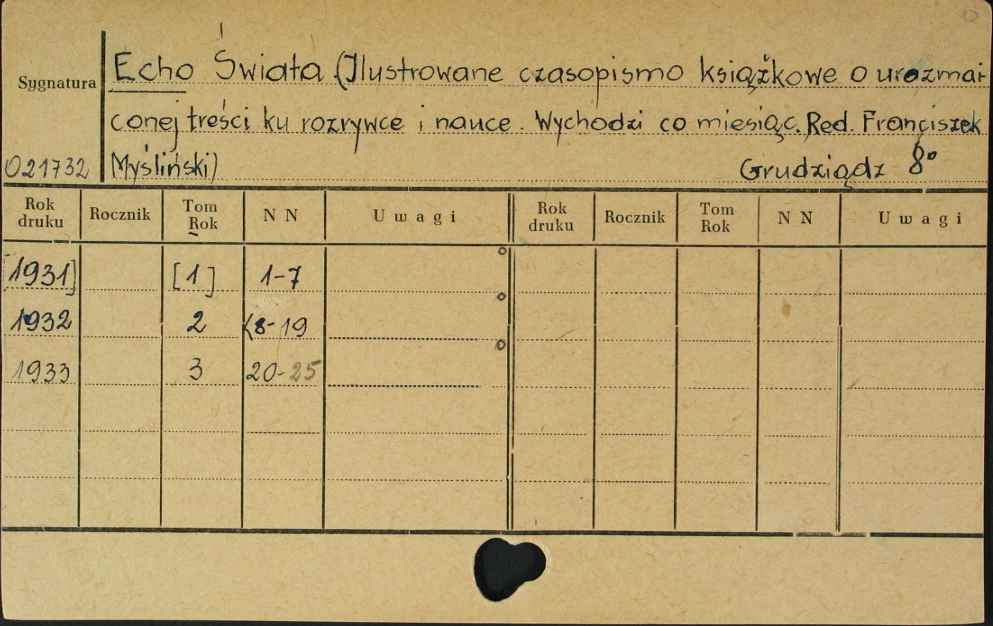 Echo Świata (Ilustrowane czasopismo książkowe o urozmai-
Sygnatura
conej treści ku rozrywce i nauce. Wychodzi co miesiąc. Red. Franciszek
021732 Myśliński) Grudziądz 8°
Rok druku Rocznik Tom Rok N N Uwagi Rok druku Rocznik Tom Rok N N Uwagi
[1931] [1] 1-7
1932 2 8-19
1933 3 20-25